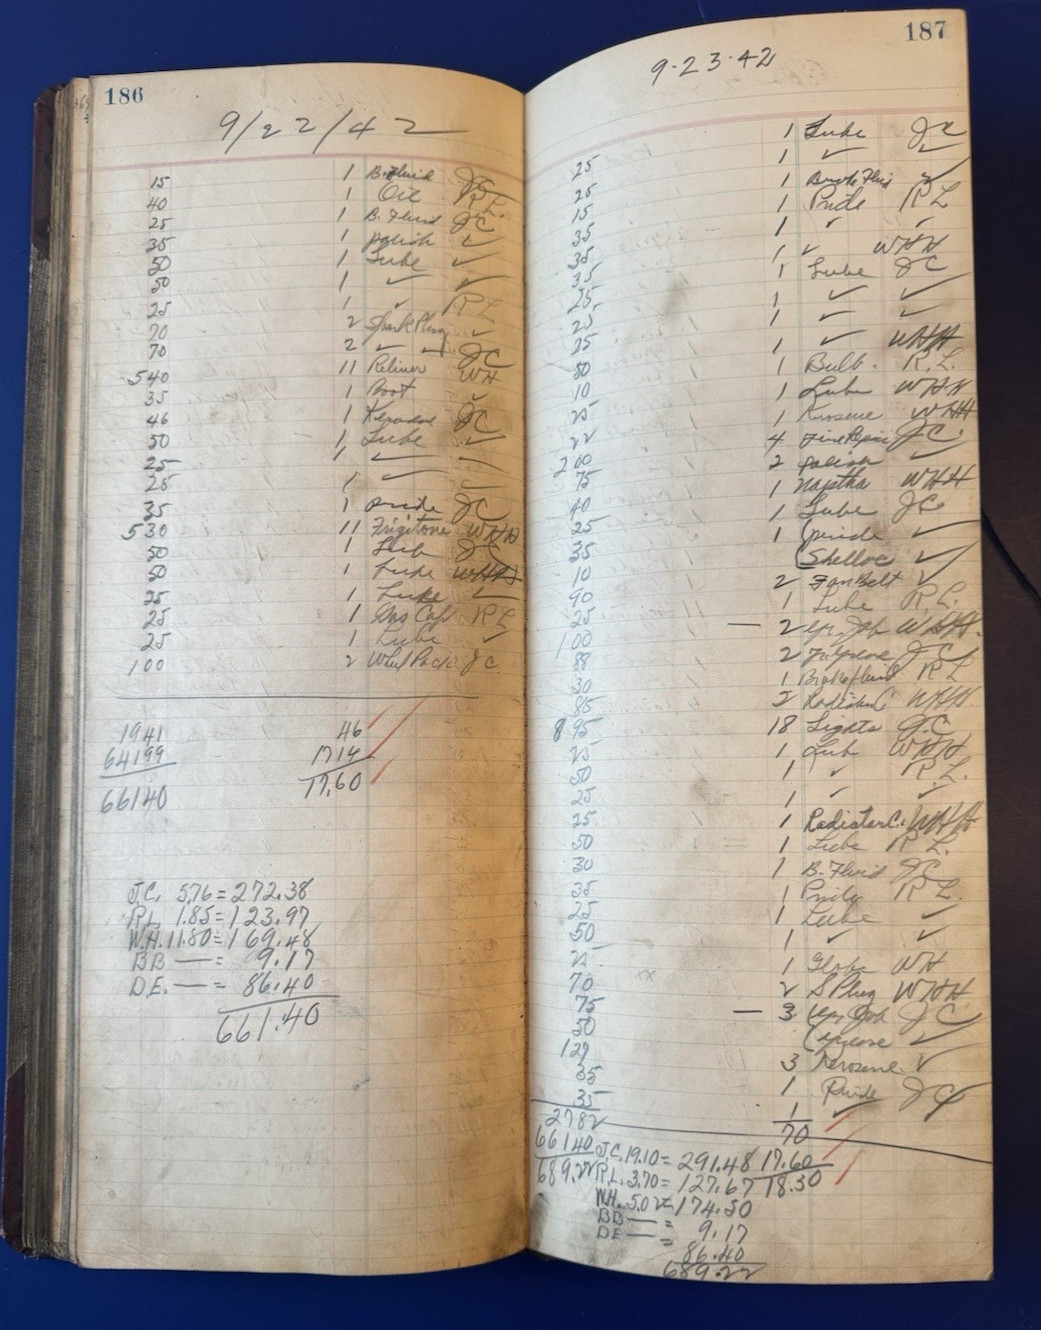 186
9/22/42
15 1 B. Fluid JC
40 1 Oil R L
25 1 B. Fluid JC
35 1 polish ✓
50 1 Lube ✓
50 1 ✓ ✓
25 1 ✓ R L
70 2 Spark Plug ✓
70 2 ✓ JC
540 11 WH
35 1 Boot ✓
46 1 JC
50 1 Lube ✓
25 1 ✓ ✓
25 1 ✓ ✓
35 1 pride JC
530 11 Frigitone WHH
50 1 JC
50 1 Lube WHH
25 1 Lube ✓
25 1 Gas Cap R L
25 1 Lube ✓
100 2 JC
1941 46
64199 1714
66140 17.60
J.C. 5.76 = 272.38
R.L. 1.85 = 123.97
W.H. 11.80 = 169.48
BB — = 9.17
D.E. — = 86.40
661.40
187
9-23-42
25 1 Lube JC
25 1 ✓ ✓
15 1 Brake Fluid ✓
35 1 Pride R L
35 1 ✓ ✓
35 1 ✓ WHH
25 1 Lube JC
25 1 ✓ ✓
25 1 ✓ ✓
50 1 ✓ WHH
10 1 Bulb. R.L.
25 1 Lube WHH
22 1 Kerosene WHH
200 4 Tire Repair JC.
75 2 ✓
40 1 Naptha WHH
25 1 Lube JC
35 1 (pride ✓
10 (Shellac ✓
90 2 Fan Belt ✓
25 1 Lube R.L.
100 — 2 Job WHH.
88 2 JC
30 1 Brake fluid R L
85 2 Radiator C WHH.
895 18 Lights JC
25 1 Lub WHH
50 1 ✓ R L.
25 1 ✓ ✓
25 1 Radiator C. WHH
50 1 Lube R L.
30 1 B. Fluid JC
35 1 R L.
25 1 Lube ✓
50 1 ✓ ✓
25 1 Globe WH
70 2 S Plug WHH
75 — 3 Job JC
50 ✓
129 3 Kerosene ✓
35 1 Pride JC
35 1 ✓
2782 70
66140 J.C. 19.10 = 291.48 17.60
689.22 R.L. 3.70 = 127.67 18.30
W.H. 5.02 = 174.50
BB — = 9.17
DE — = 86.40
689.22